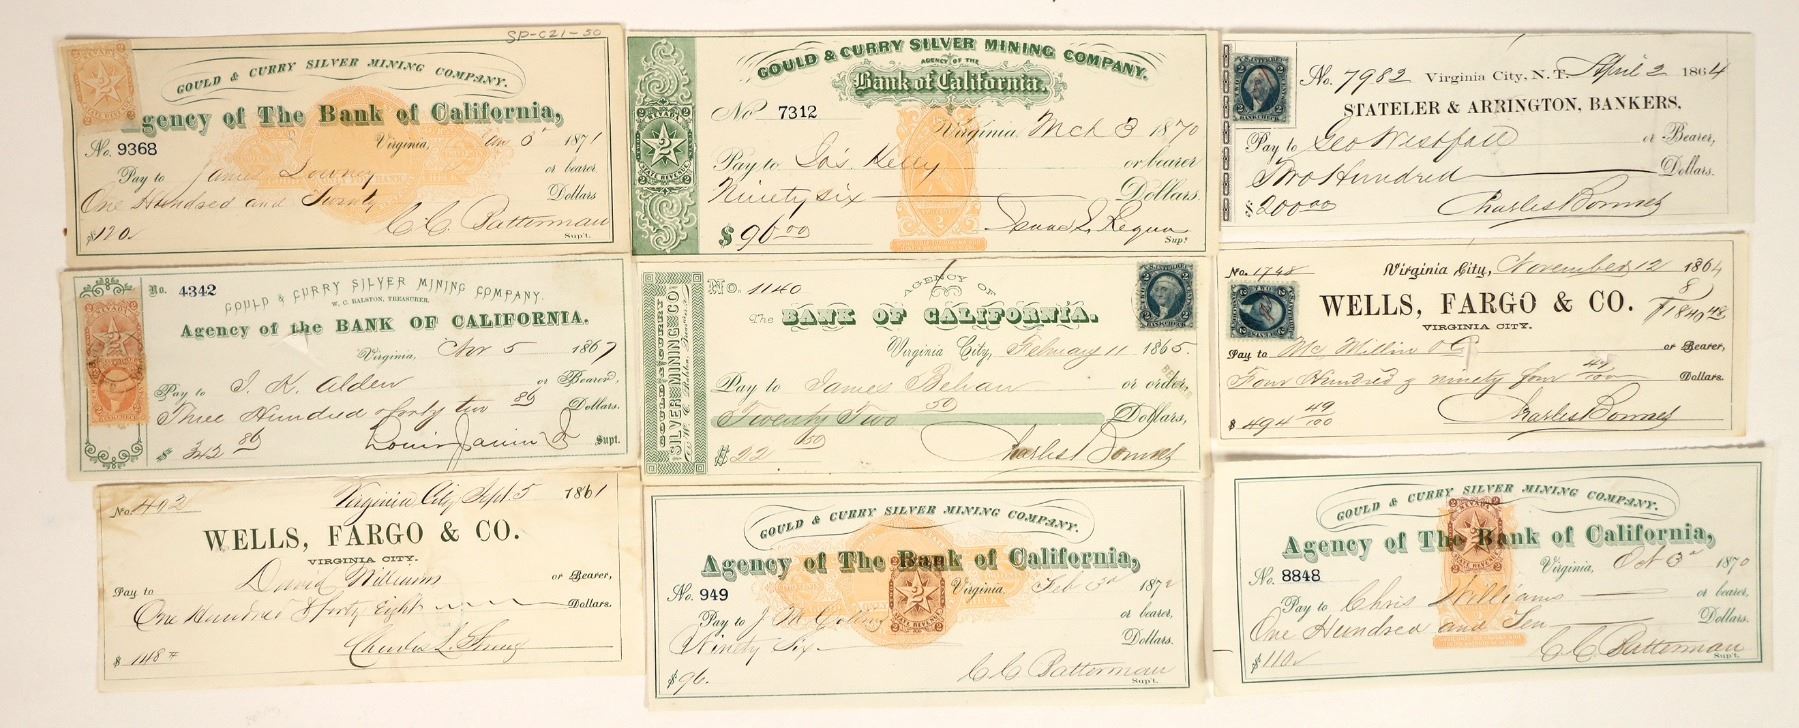 SP-C21-50
GOULD & CURRY SILVER MINING COMPANY.
Agency of The Bank of California,
No. 9368 Virginia, 1871
Pay to James Downey or bearer
One Hundred and Twenty Dollars
$120 C. C. Batterman
Sup't.
GOULD & CURRY SILVER MINING COMPANY.
AGENCY OF THE
Bank of California.
NEVADA
2
STATE REVENUE
No 7312
Virginia, Mch 3 1870
Pay to Jas Kelly or bearer
Ninety six Dollars
$96.00
Supt
No. 7982 Virginia City, N.T. April 2 1864
STATELER & ARRINGTON, BANKERS,
Pay to Geo Westfall or Bearer,
Two Hundred Dollars.
$200.00 Charles Bonner
No. 4342
GOULD & CURRY SILVER MINING COMPANY.
W. C. RALSTON, TREASURER.
Agency of the BANK OF CALIFORNIA.
Virginia, Nov 5 1867
Pay to J. K. Alden or Bearer,
Three Hundred & forty two 86 Dollars.
$342 86 Louis Janin Jr Supt.
SILVER MINING CO.
No. 1140
AGENCY OF
The BANK OF CALIFORNIA.
Virginia City, February 11 1865.
Pay to James Behan or order,
Twenty Two 50 Dollars,
$22 50 Charles Bonner
No. 1748 Virginia City, November 12 1864
WELLS, FARGO & CO.
VIRGINIA CITY.
Pay to or Bearer,
Four Hundred & ninety four 49/100 Dollars.
$494 49/100 Charles Bonner
No. 402 Virginia City, Sept. 5 1861
WELLS, FARGO & CO.
VIRGINIA CITY.
Pay to David Williams or Bearer,
One Hundred & forty Eight Dollars.
$148 Charles L. Strong
GOULD & CURRY SILVER MINING COMPANY.
Agency of The Bank of California,
No. 949 Virginia, Feb 3d 1872
Pay to or bearer,
Ninety Six Dollars.
$96. C C Batterman
Sup't.
GOULD & CURRY SILVER MINING COMPANY.
Agency of The Bank of California,
No. 8848 Virginia, Oct 3d 1870
Pay to Chris Williams or bearer,
One Hundred and Ten Dollars.
$110 C C Batterman
Sup't.